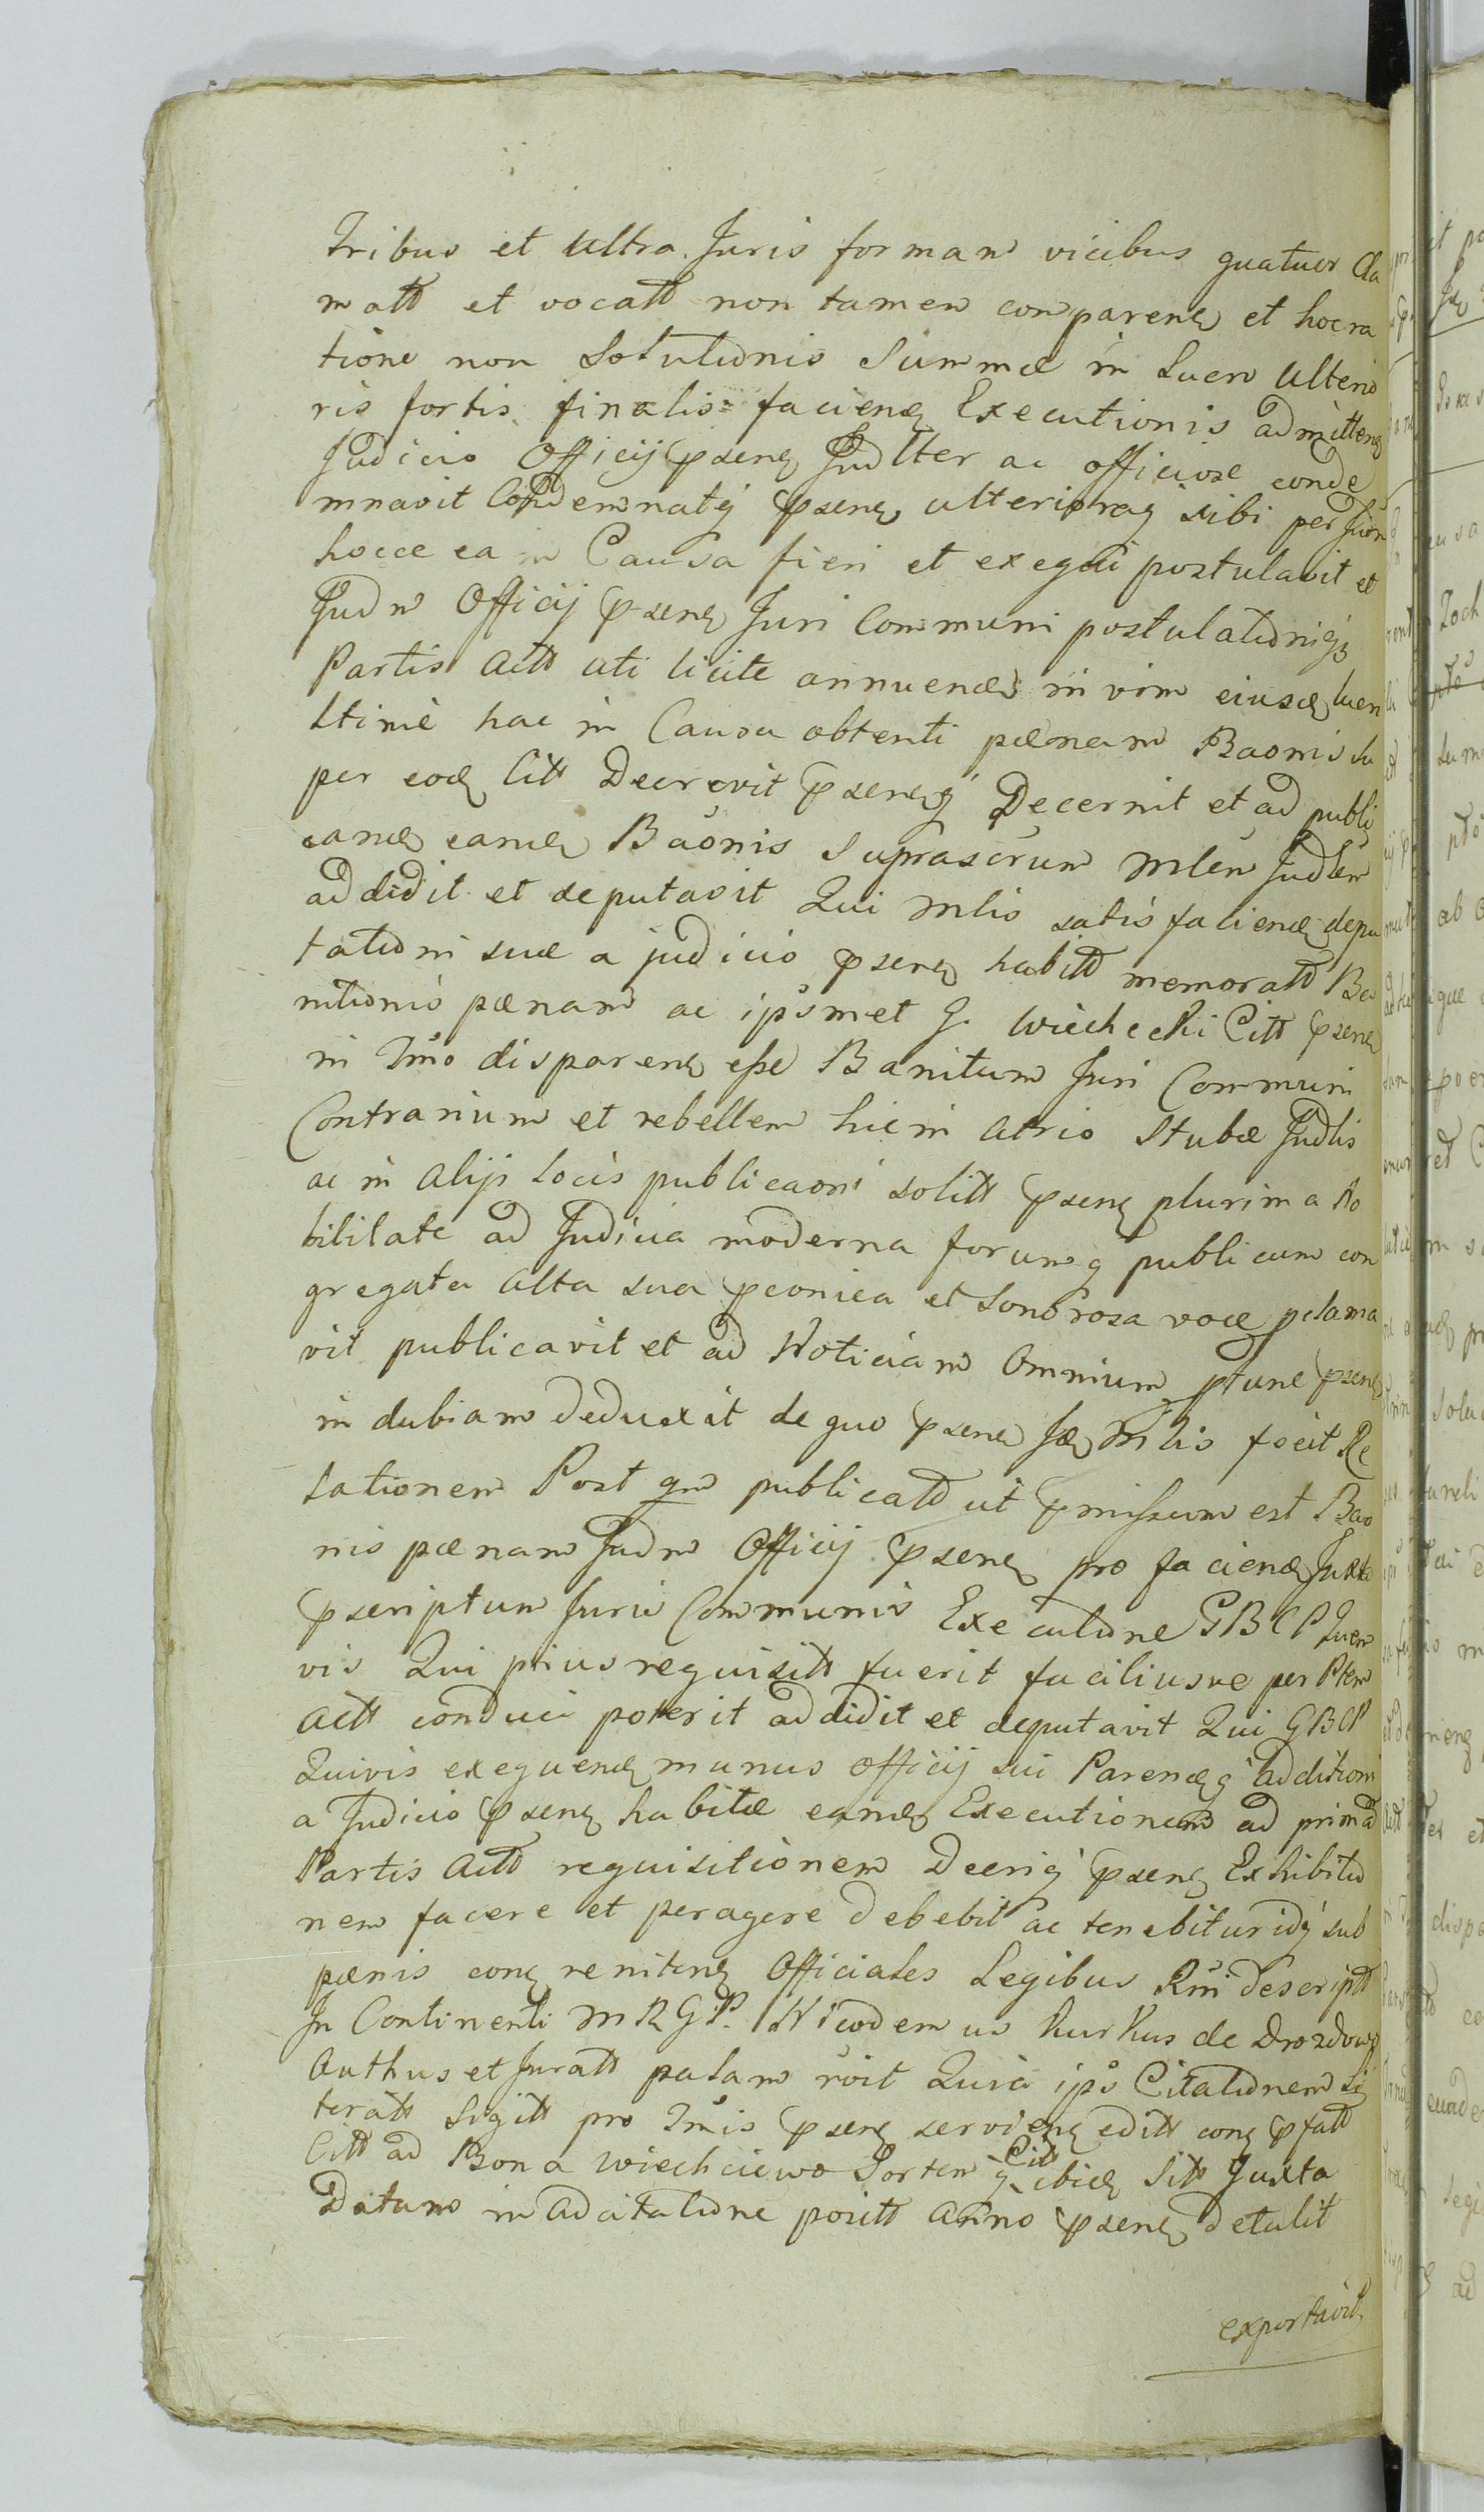 Tribus et ultra Juris formam vicibus quatuor Cla
matt et vocatt non tamen comparens et hocra
tione non Solutionis Summæ in Lucro Ulterio
ris fortis finalis faciens Executionis admittens
Judicio Officij psens Judlter ac officiose conde
mnavit Condemnatq psens ulterioraq sibi per Juon
hocce ea in Causa fieri et exequi postulavit et
Judm Officij psens Juri Communi postulationiq3
Partis Actt uti licite annuendo in vim eiusd lucri
ltimè hac in Causa obtenti pænam Baonis su
per eod Citt Decrevit psensq Decernit et ad publi
cand eand Baonis suprascrum Mlem Judlem
addidit et deputavit Qui Mlis satisfaciend depu
tationi suæ a judicio psens habitt memoratt Ba
nitionis pænam ac ipsmet G. Wiechecki Citt psens
in Tmo disparens esse Banitum Juri Communi
Contrarium et rebellem hicin atrio Stubæ Judlis
ac in alijs locis publicaoni solitt psens plurima No
bilitate ad Judicia moderna forumq publicum con
gregata alta sua pconiea et Sonorosa voce pclama
vit publicavit et ad Noticiam Omnium ptunc psens
in dubiam deduxit de quo psens Jdem Mlis fecit Re
lationem Post qm publicatt ut pmissum est Bao
nis pænam Judm Officij psens pro faciend Juxta
pscriptum Juris Communis Executione GBCP Quem
vis Qui prius requisitt fuerit faciliusve per Ptem
Actt conduci poterit addidit et deputavit Qui GBCP
Quivis exequend munus officij sui Parendq additioni
a Judicio psens habitæ eand Executionem ad primã
Partis Actt requisitionem Decriq psens Exhibitio
nem facere et peragere debebit ac tenebituridq sub
pænis cong renitens Officiales Legibus Rni descriptt
In Continenti MRGP. Nicodemus Kurkus de Drozdowo
Authus et Juratt palam rvit Quia ips Citationem Li
teratt Sigitt pro Tmis psens serviens editt cong pfatt
Citt ad Bona Wiechciewo Sortem q Citt ibid Sitt Juxta
Datam in adcitatione positt Anno psens detulit
exportavit